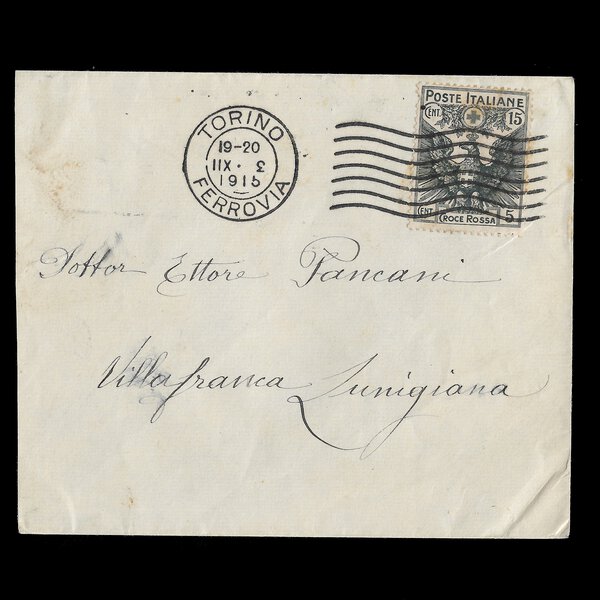 TORINO
19-20
IIX · 3
1915
FERROVIA
POSTE ITALIANE
CENT. 15
CENT. 5
CROCE ROSSA
Dottor Ettore Pancani
Villafranca Lunigiana